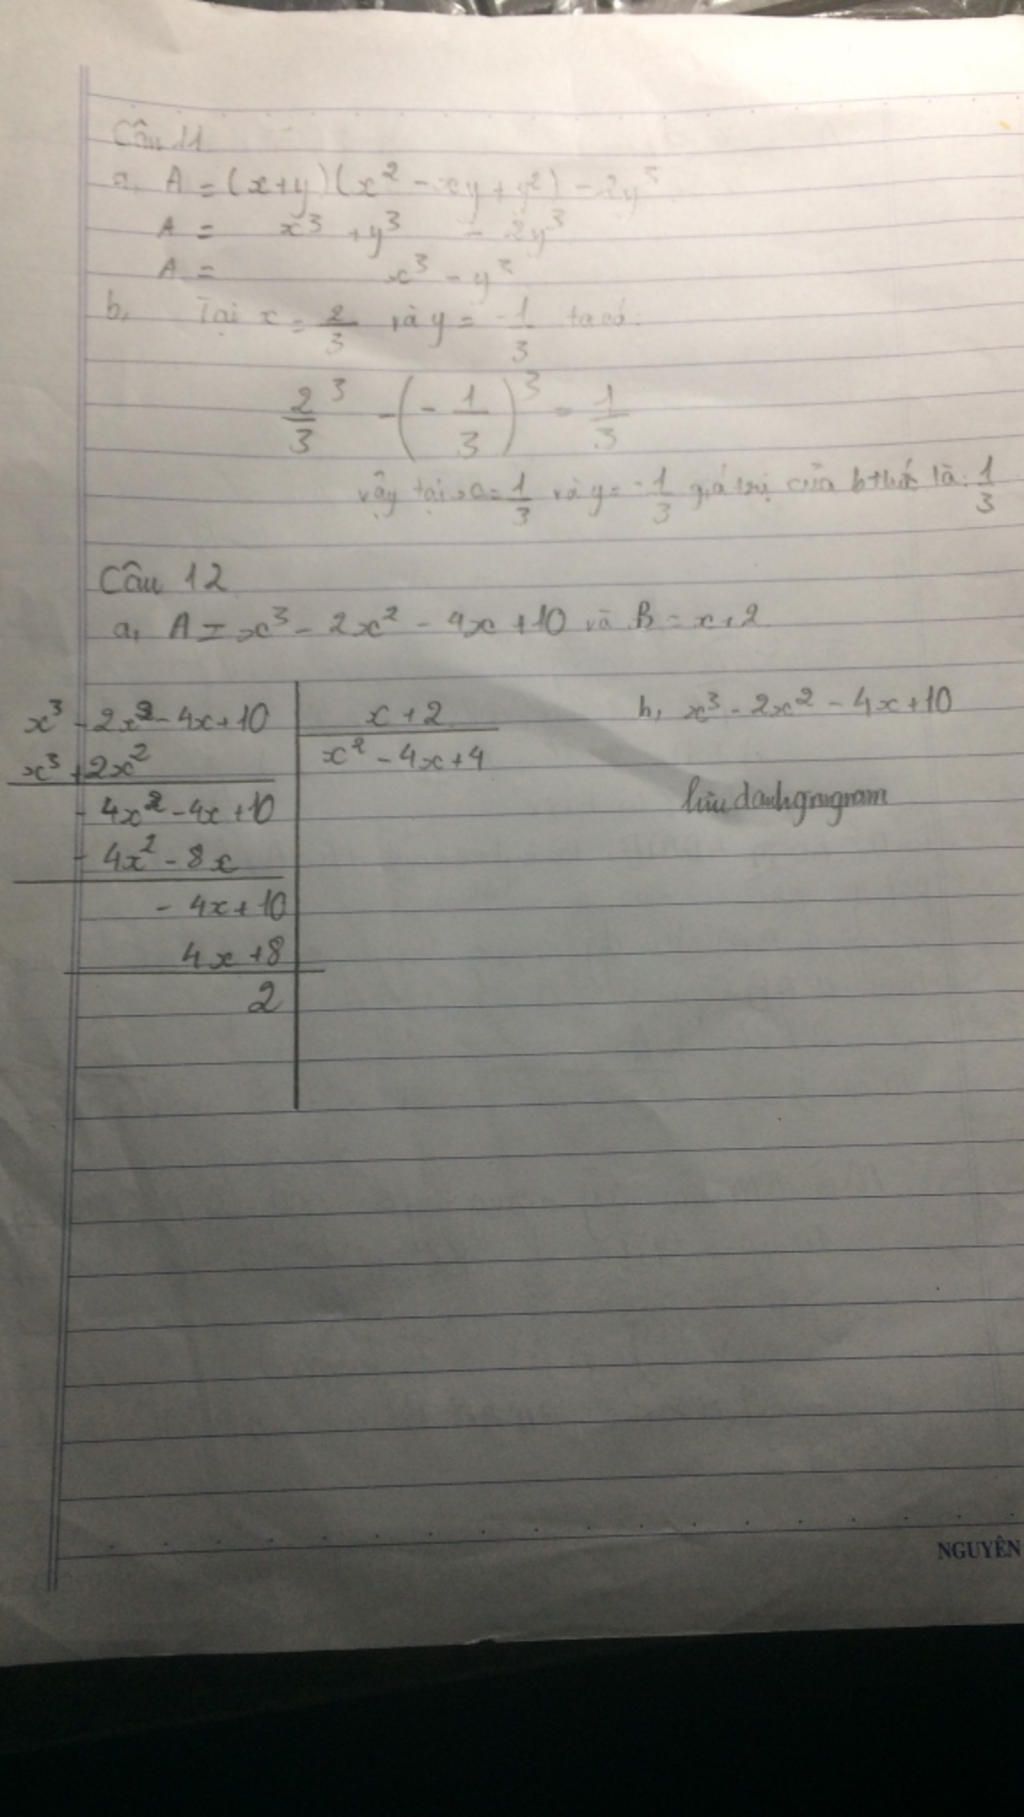 Câu 11
a, A = (x+y)(x² - xy + y²) - 2y³
A = x³ + y³ - 2y³
A = x³ - y³
b, Tại x = 2/3 và y = -1/3 ta có:
2/3 ³ - (-1/3)³ = 1/3
vậy tại x = 1/3 và y = -1/3 giá trị của bthức là: 1/3
Câu 12
a, A = x³ - 2x² - 4x + 10 và B = x + 2
x³ - 2x² - 4x + 10 | x + 2
x³ + 2x² | x² - 4x + 4
- 4x² - 4x + 10
- 4x² - 8x
- 4x + 10
4x + 8
2
b, x³ - 2x² - 4x + 10
NGUYÊN